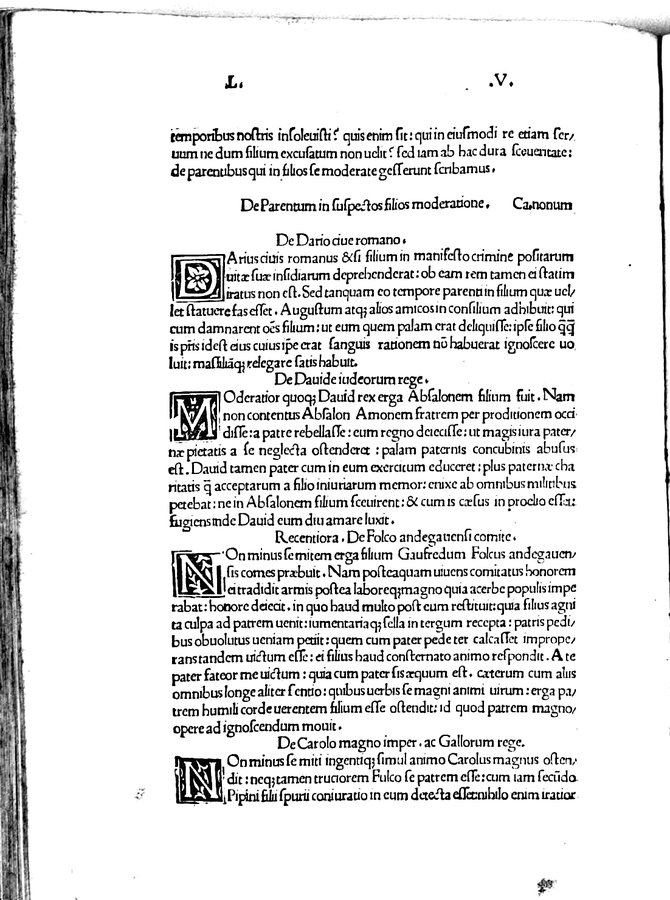 .L. .V.
temporibus nostris insoleuisti? quis enim sit: qui in eiusmodi re etiam ser/
uum ne dum filium excusatum non uelit? sed iam ab hac dura sceueritate:
de parentibus qui in filios se moderate gesserunt scribamus.
De Parentum in suspectos filios moderatione. Ca.nonum
De Dario ciue romano.
DArius ciuis romanus &si filium in manifesto crimine positarum
uitæ suæ insidiarum deprehenderat: ob eam rem tamen ei statim
iratus non est. Sed tanquam eo tempore parenti in filium quæ uel/
let statuere fas esset. Augustum atq; alios amicos in consilium adhibuit: qui
cum damnarent oēs filium: ut eum quem palam erat deliquisse: ipse filio q̄q̄
is pr̄is idest eius cuius ip̄e erat sanguis rationem nō habuerat ignoscere uo
luit: massiliāq; relegare satis habuit.
De Dauide iudeorum rege.
MOderatior quoq; Dauid rex erga Absalonem filium fuit. Nam
non contentus Absalon Amonem fratrem per proditionem occi
disse: a patre rebellasse: eum regno deiecisse: ut magis iura pater/
næ pietatis a se neglecta ostenderet: palam paternis concubinis abusus
est. Dauid tamen pater cum in eum exercitum educeret: plus paternæ cha
ritatis q̄ acceptarum a filio iniuriarum memor: enixe ab omnibus militibus
petebat: ne in Absalonem filium sceuirent: & cum is cæsus in proelio esset:
fugiens inde Dauid eum diu amare luxit.
Recentiora. De Folco andegauensi comite.
NOn minus se mitem erga filium Gaufredum Folcus andegauen/
sis comes præbuit. Nam posteaquam uiuens comitatus honorem
ei tradidit armis postea laboreq; magno quia acerbe populis impe
rabat: honore deiecit. in quo haud multo post eum restituit: quia filius agni
ta culpa ad patrem uenit: iumentariaq; sella in tergum recepta: patris pedi/
bus obuolutus ueniam petiit: quem cum pater pede ter calcasset imprope/
rans tandem uictum esse: ei filius haud consternato animo respondit. A te
pater fateor me uictum: quia cum pater sis æquum est. cæterum cum aliis
omnibus longe aliter sentio: quibus uerbis se magni animi uirum: erga pa/
trem humili corde uerentem filium esse ostendit: id quod patrem magno/
opere ad ignoscendum mouit.
De Carolo magno imper. ac Gallorum rege.
NOn minus se miti ingentiq; simul animo Carolus magnus osten/
dit: neq; tamen truciorem Fulco se patrem esse: cum iam secūdo
Pipini filii spurii coniuratio in eum detecta esset: nihilo enim iratior